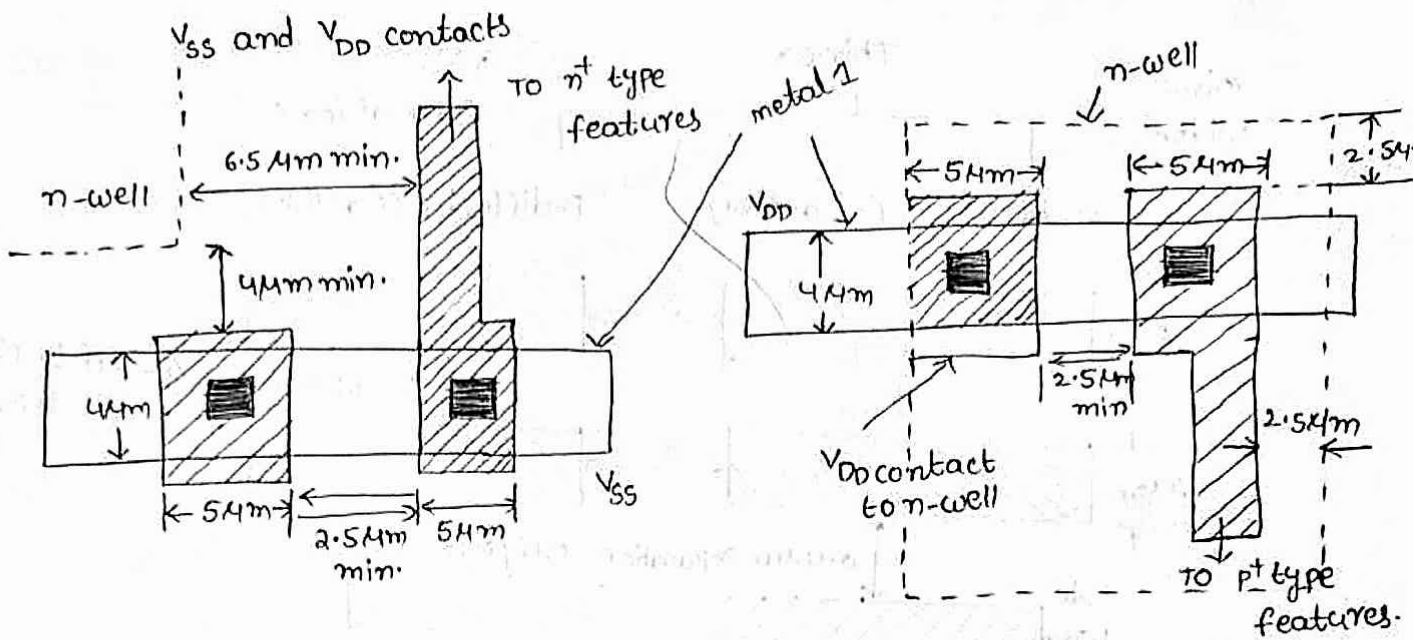 V_SS and V_DD contacts
TO n⁺ type
features
6.5 μm min.
n-well
4μm min.
4μm
5μm
2.5μm
min.
5μm
V_SS
metal 1
n-well
5μm
5μm
2.5μ
V_DD
4μm
2.5μm
min
2.5μm
V_DD contact
to n-well
TO p⁺ type
features.